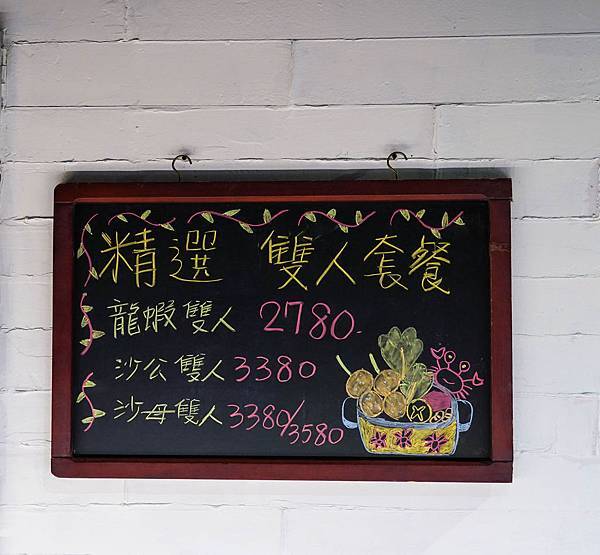 精選 雙人套餐
龍蝦雙人 2780.
沙公雙人 3380
沙母雙人 3380/3580